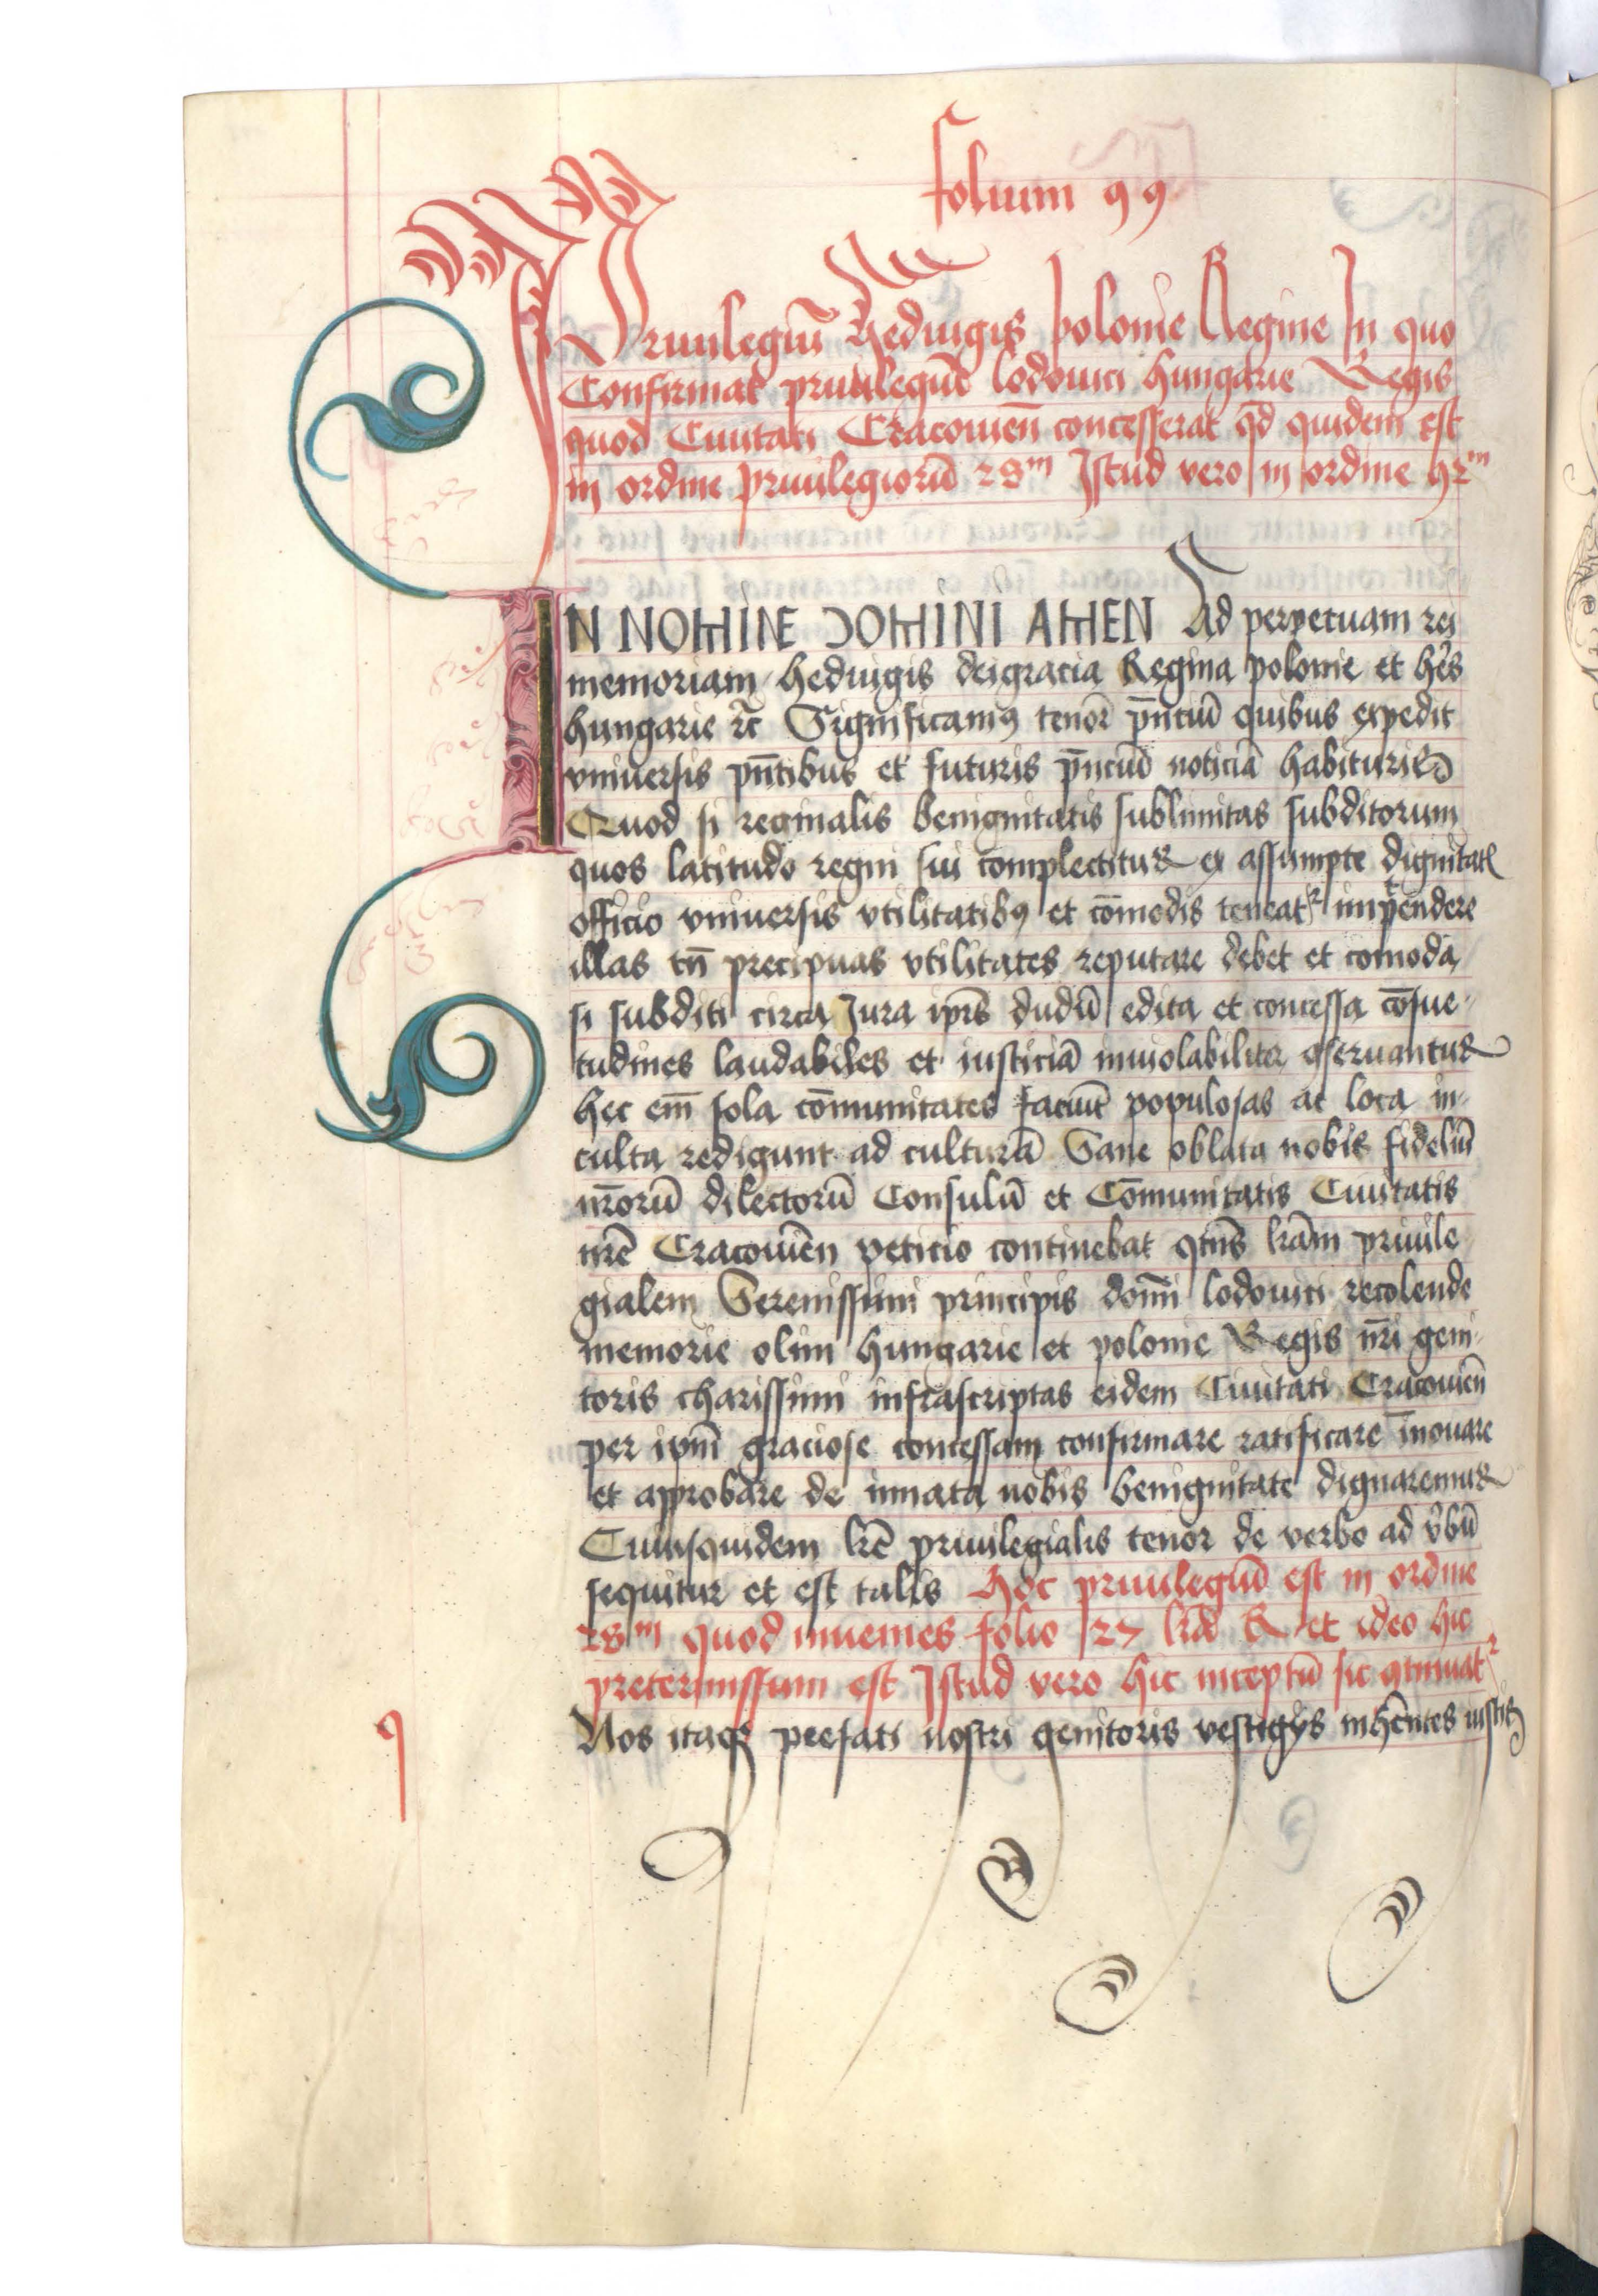 folium 99
Priuilegiū Hedwigis polonie Regine In quo
Confirmat priuilegiū lodouici Hungarie Regis
quod Ciuitati Cracouien̄ concesserat qd̄ quidem est
in ordine priuilegiorū 28m Istud vero in ordine 42m
IN NOMINE DOMINI AMEN Ad perpetuam rei
memoriam hedwigis deigracia Regina polonie et hēs
hungarie rc̄ Significamꝰ tenōr pn̄ciū quibus expedit
vniuersis pn̄tibus et futuris pn̄ciū noticiā habituris
Quod si reginalis benignitatis sublimitas subditorum
quos latitudo regni sui complectitur ex assumpte dignitatꝭ
officio vniuersis vtilitatibꝰ et cōmodis teneatr impendere
illas tn̄ precipuas vtilitates reputare debet et comoda
si subditi circa Jura ip̄rs dudū edita et concessa cōsue-
tudines laudabiles et iusticiā inuiolabiliter ꝯseruantur
hec em̄ sola cōmunitates faciūt populosas ac loca in-
culta redigunt ad culturā Sane oblata nobis fideliū
nr̄orū dilectorū Consulū et Cōmunitatis Ciuitatis
nr̄e Cracouien̄ peticio continebat qtn̄s lr̄am priuile
gialem Serenissimi principis domi̅ lodouici recolende
memorie olim hungarie et polonie Regis nr̄i geni-
toris charissimi infrascriptas eidem Ciuitati Cracouien̄
per ipm̄ graciose concessam confirmare ratificare īnouare
et approbare de innata nobis benignitate dignaremur
Cuiusquidem lr̄e priuilegialis tenor de verbo ad v̄bū
sequitur et est talis Hoc priuilegiū est in ordine
28m quod inuenies folio 27 lr̄a R et ideo hic
pretermissum est Istud vero hic inceptū sic ꝯtinuatr
Nos itaqꝫ prefati nostri genitoris vestigijs inhēntes iustis